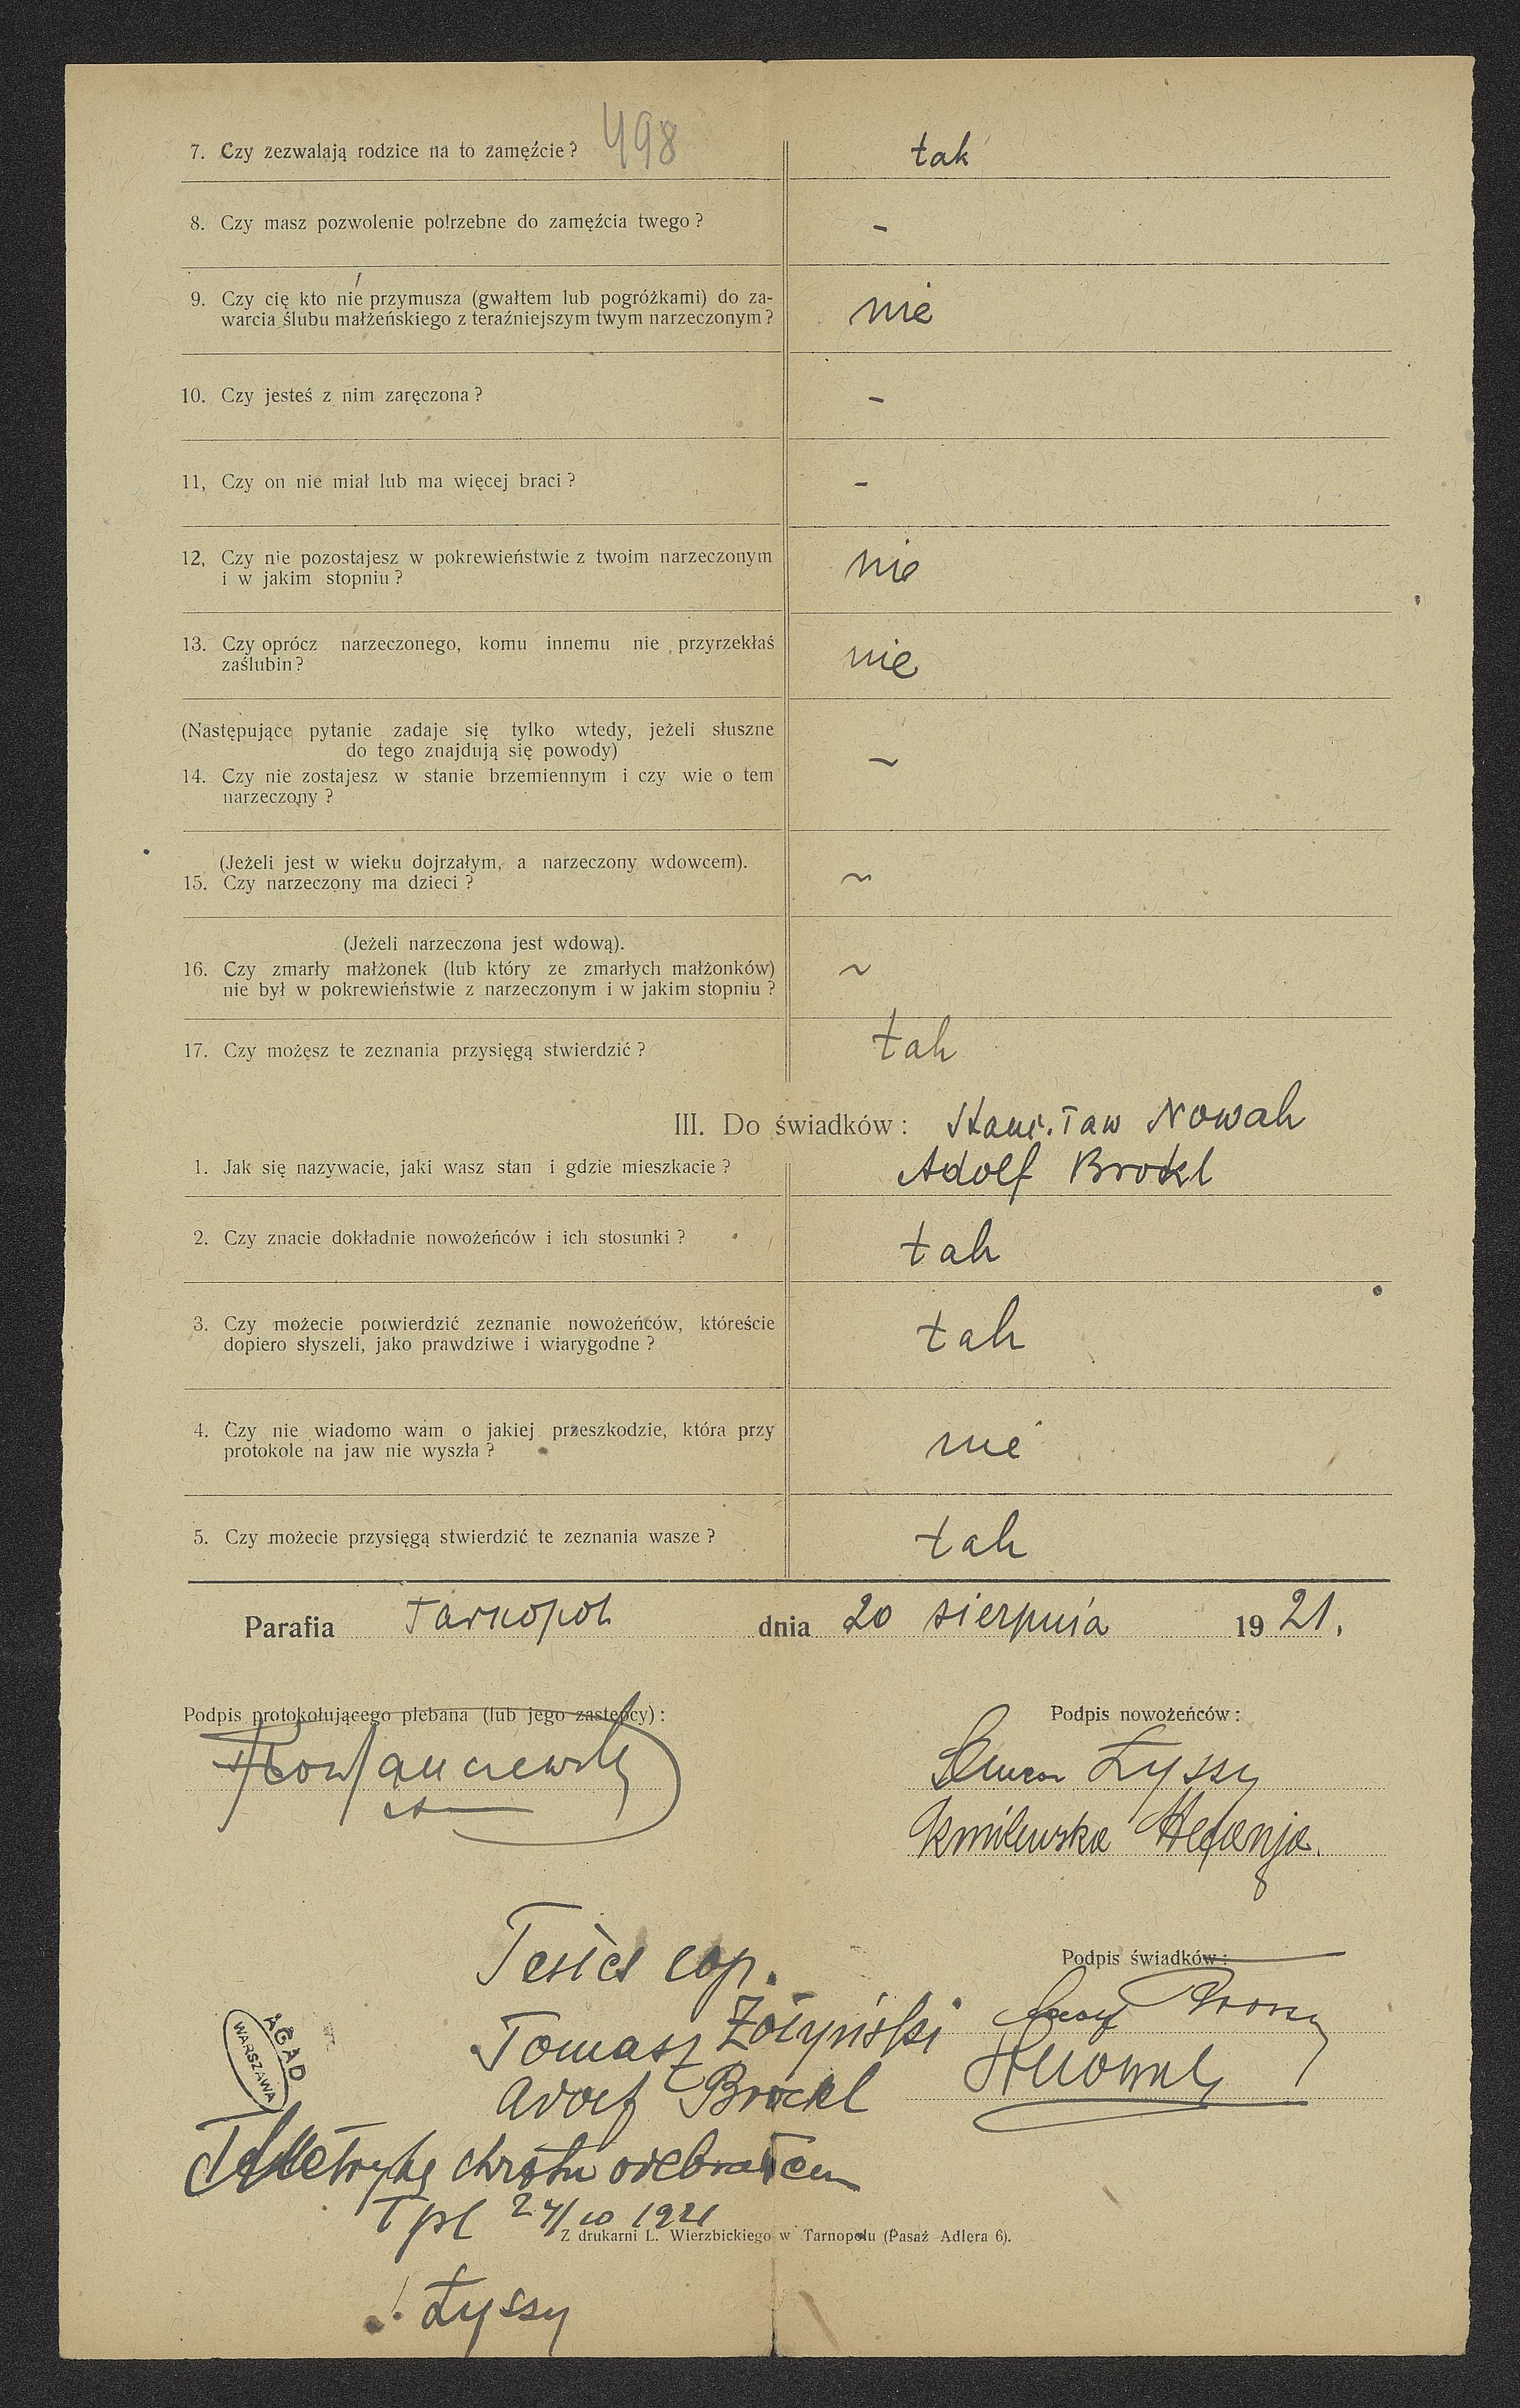 498
7. Czy zezwalają rodzice na to zamęźcie? tak
8. Czy masz pozwolenie potrzebne do zamęźcia twego? -
9. Czy cię kto nie przymusza (gwałtem lub pogróżkami) do za- nie
warcia ślubu małżeńskiego z teraźniejszym twym narzeczonym?
10. Czy jesteś z nim zaręczona? -
11, Czy on nie miał lub ma więcej braci? -
12, Czy nie pozostajesz w pokrewieństwie z twoim narzeczonym nie
i w jakim stopniu?
13. Czy oprócz narzeczonego, komu innemu nie przyrzekłaś nie
zaślubin?
(Następujące pytanie zadaje się tylko wtedy, jeżeli słuszne
do tego znajdują się powody) ~
14. Czy nie zostajesz w stanie brzemiennym i czy wie o tem
narzeczony?
(Jeżeli jest w wieku dojrzałym, a narzeczony wdowcem).
15. Czy narzeczony ma dzieci? ~
(Jeżeli narzeczona jest wdową).
16. Czy zmarły małżonek (lub który ze zmarłych małżonków) ~
nie był w pokrewieństwie z narzeczonym i w jakim stopniu?
17. Czy możesz te zeznania przysięgą stwierdzić? tak
III. Do świadków: Stanisław Nowak
1. Jak się nazywacie, jaki wasz stan i gdzie mieszkacie? Adolf Brockl
2. Czy znacie dokładnie nowożeńców i ich stosunki? tak
3. Czy możecie potwierdzić zeznanie nowożeńców, któreście tak
dopiero słyszeli, jako prawdziwe i wiarygodne?
4. Czy nie wiadomo wam o jakiej przeszkodzie, która przy nie
protokole na jaw nie wyszła?
5. Czy możecie przysięgą stwierdzić te zeznania wasze? tak
Parafia Tarnopol dnia 20 sierpnia 1921.
Podpis protokołującego plebana (lub jego zastępcy): Podpis nowożeńców:
Łyssy
Stefanja
Testes cop. Podpis świadków:
Tomasz Żołyński
Adolf Brockl
AGAD
WARSZAWA
Metrykę chrztu odebrałem
Tpl 24/10 1921
Z drukarni L. Wierzbickiego w Tarnopolu (Pasaż Adlera 6).
Łyssy